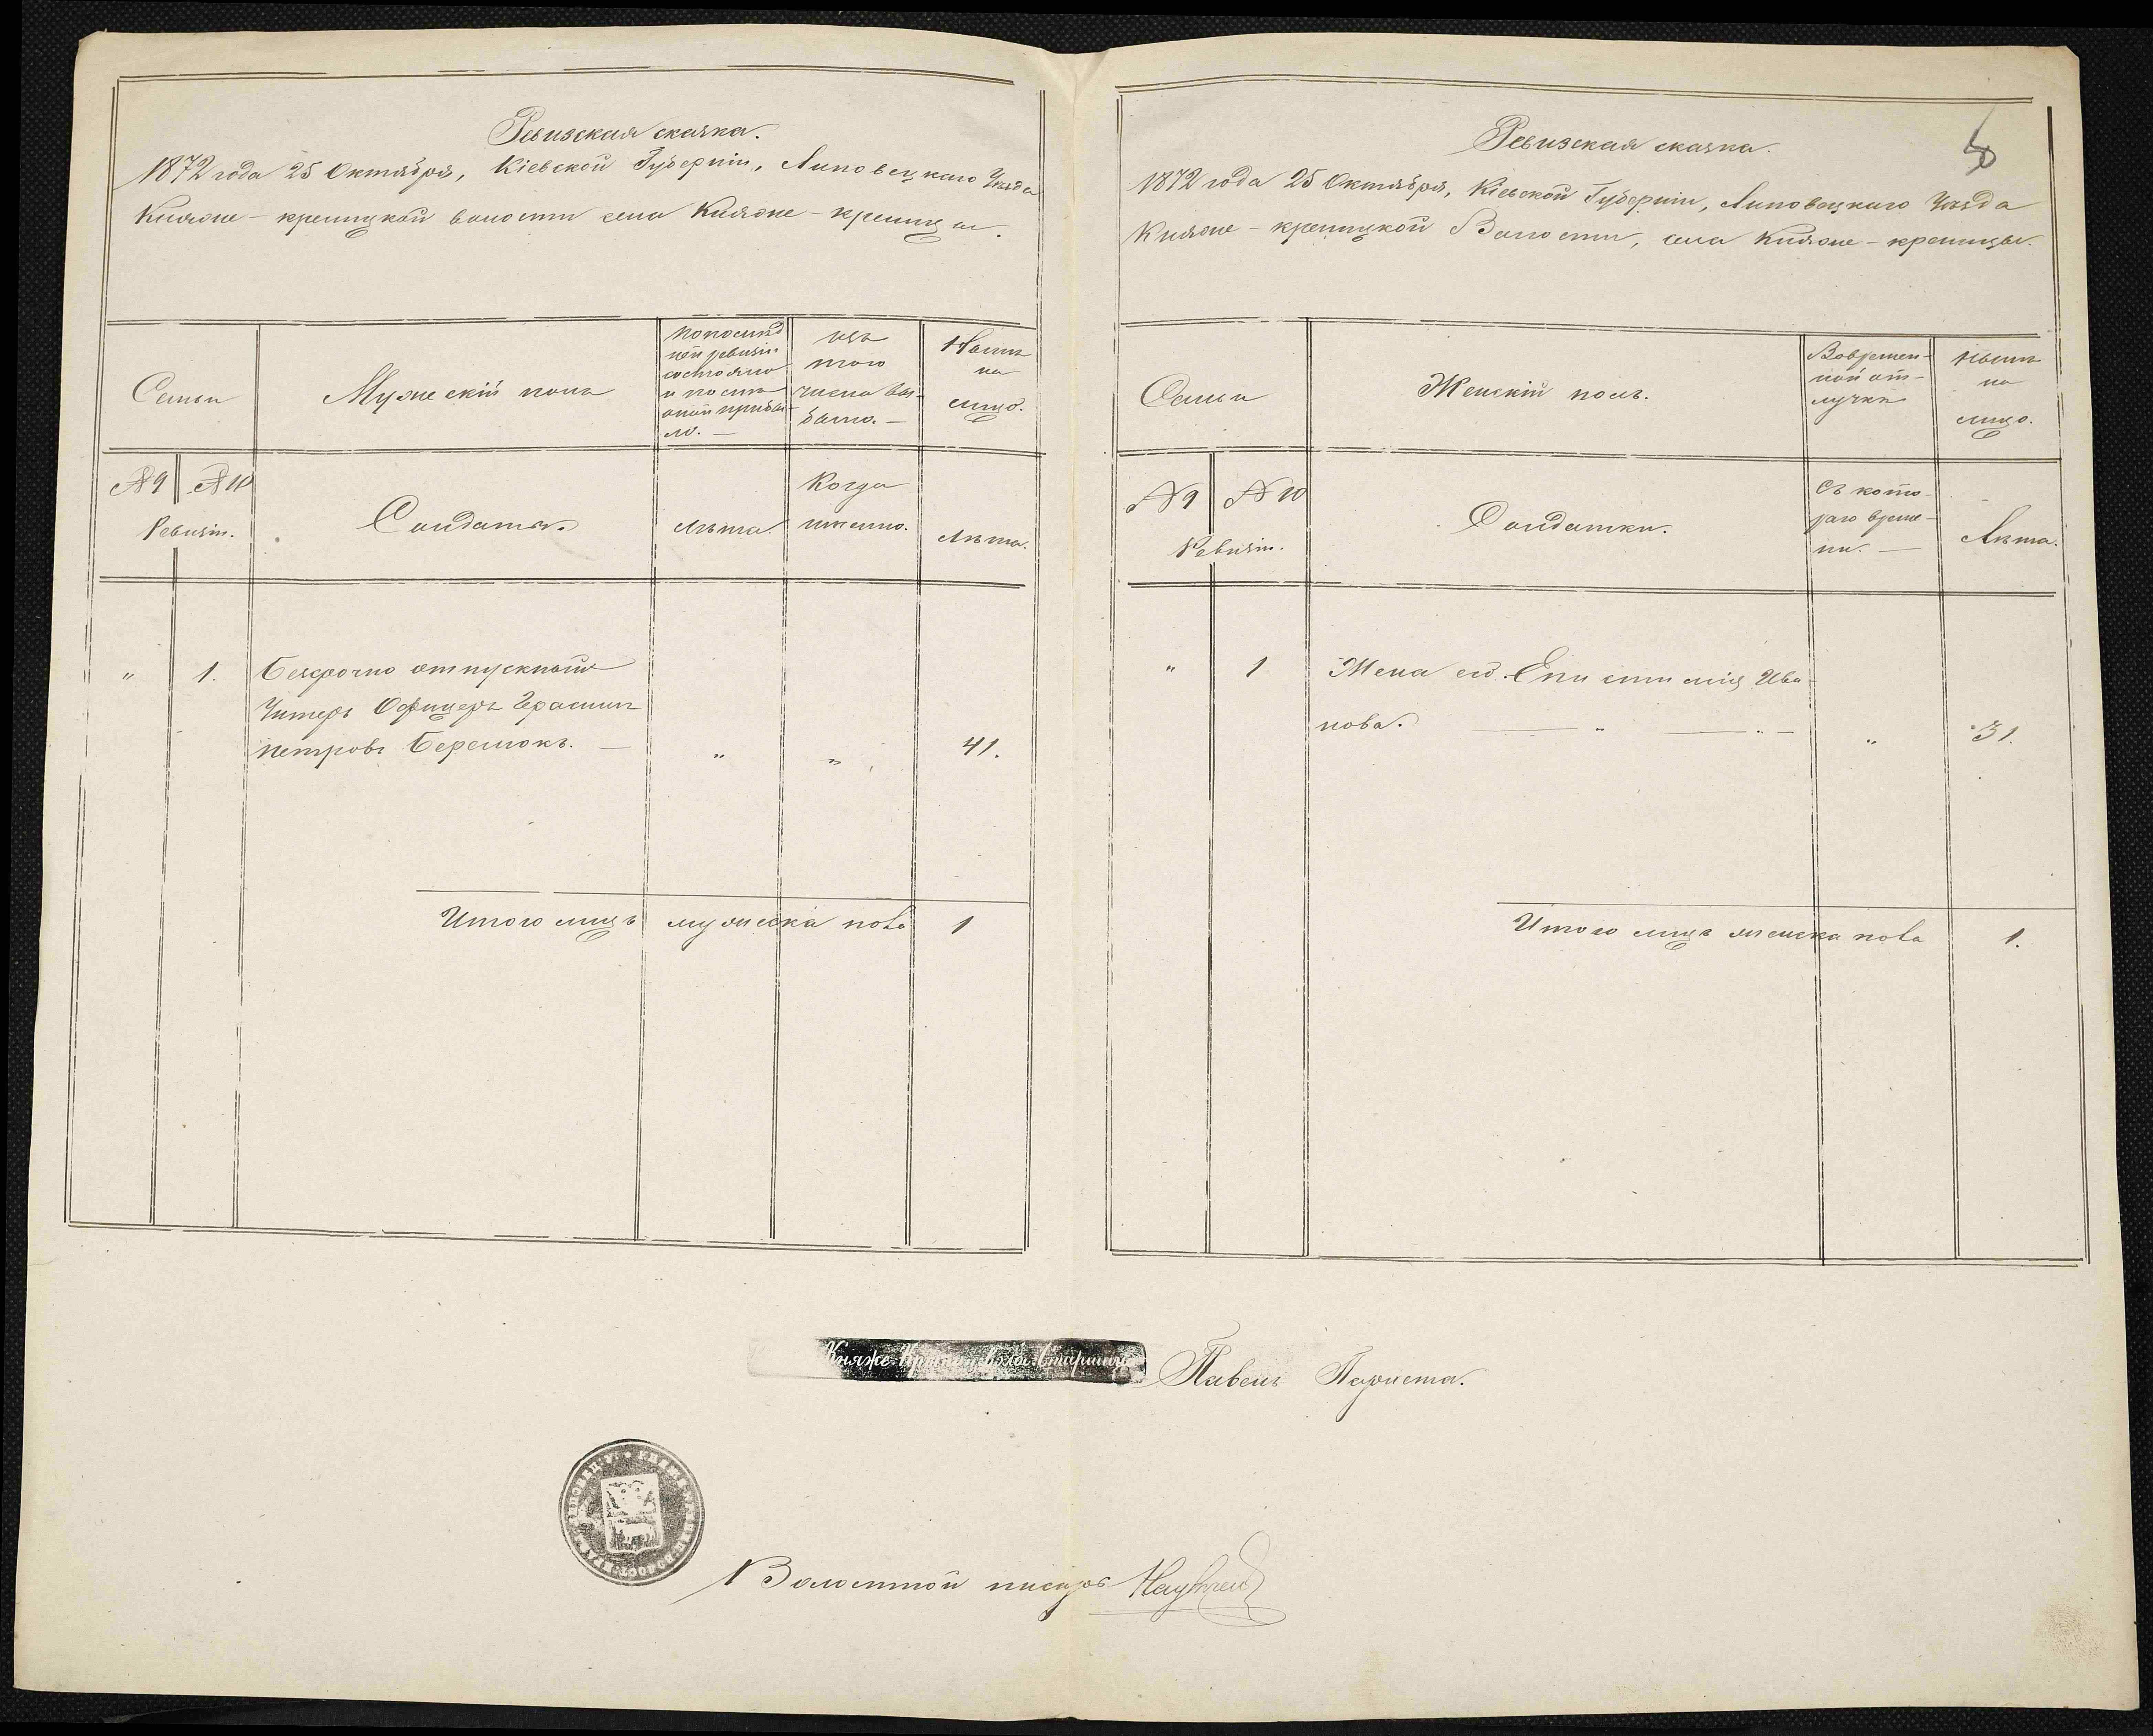 Ревизская сказка.
1872 года 25 Октября, Кіевской Губерніи, Липовецкаго Уезда
Княже-креницкой волости села Княже-креницы.
Семьи
Мужескій полъ
По послѣд
ней ревизіи
состояло
и послѣ
оной прибы
ло. —
изъ
того
числа вы-
было. —
Нынѣ
на
лицо.
№ 9 № 10
Ревизіи.
Солдаты.
Лѣта.
Когда
именно.
Лѣта.
" 1. Безсрочно отпускный
Унтеръ Офицеръ Герасимъ
Петровъ Беремокъ. — " " 41.
Итого лицъ мужеска пола 1
50
Ревизская сказка.
1872 года 25 Октября, Кіевской Губерніи, Липовецкаго Уезда
Княже-креницкой Волости, села Княже-креницы.
Семьи
Женскій полъ.
Вовремен-
ной от-
лучкѣ
Нынѣ
на
лицо.
№ 9 № 10
Ревизіи.
Солдатки.
Съ кото-
раго време-
ни. —
Лѣта.
" 1 Жена его Епистимія Ива-
нова. — " — " 31.
Итого лицъ женска пола 1.
Княже-Креницк. Волос. Старшина Павелъ
Волостной писарь